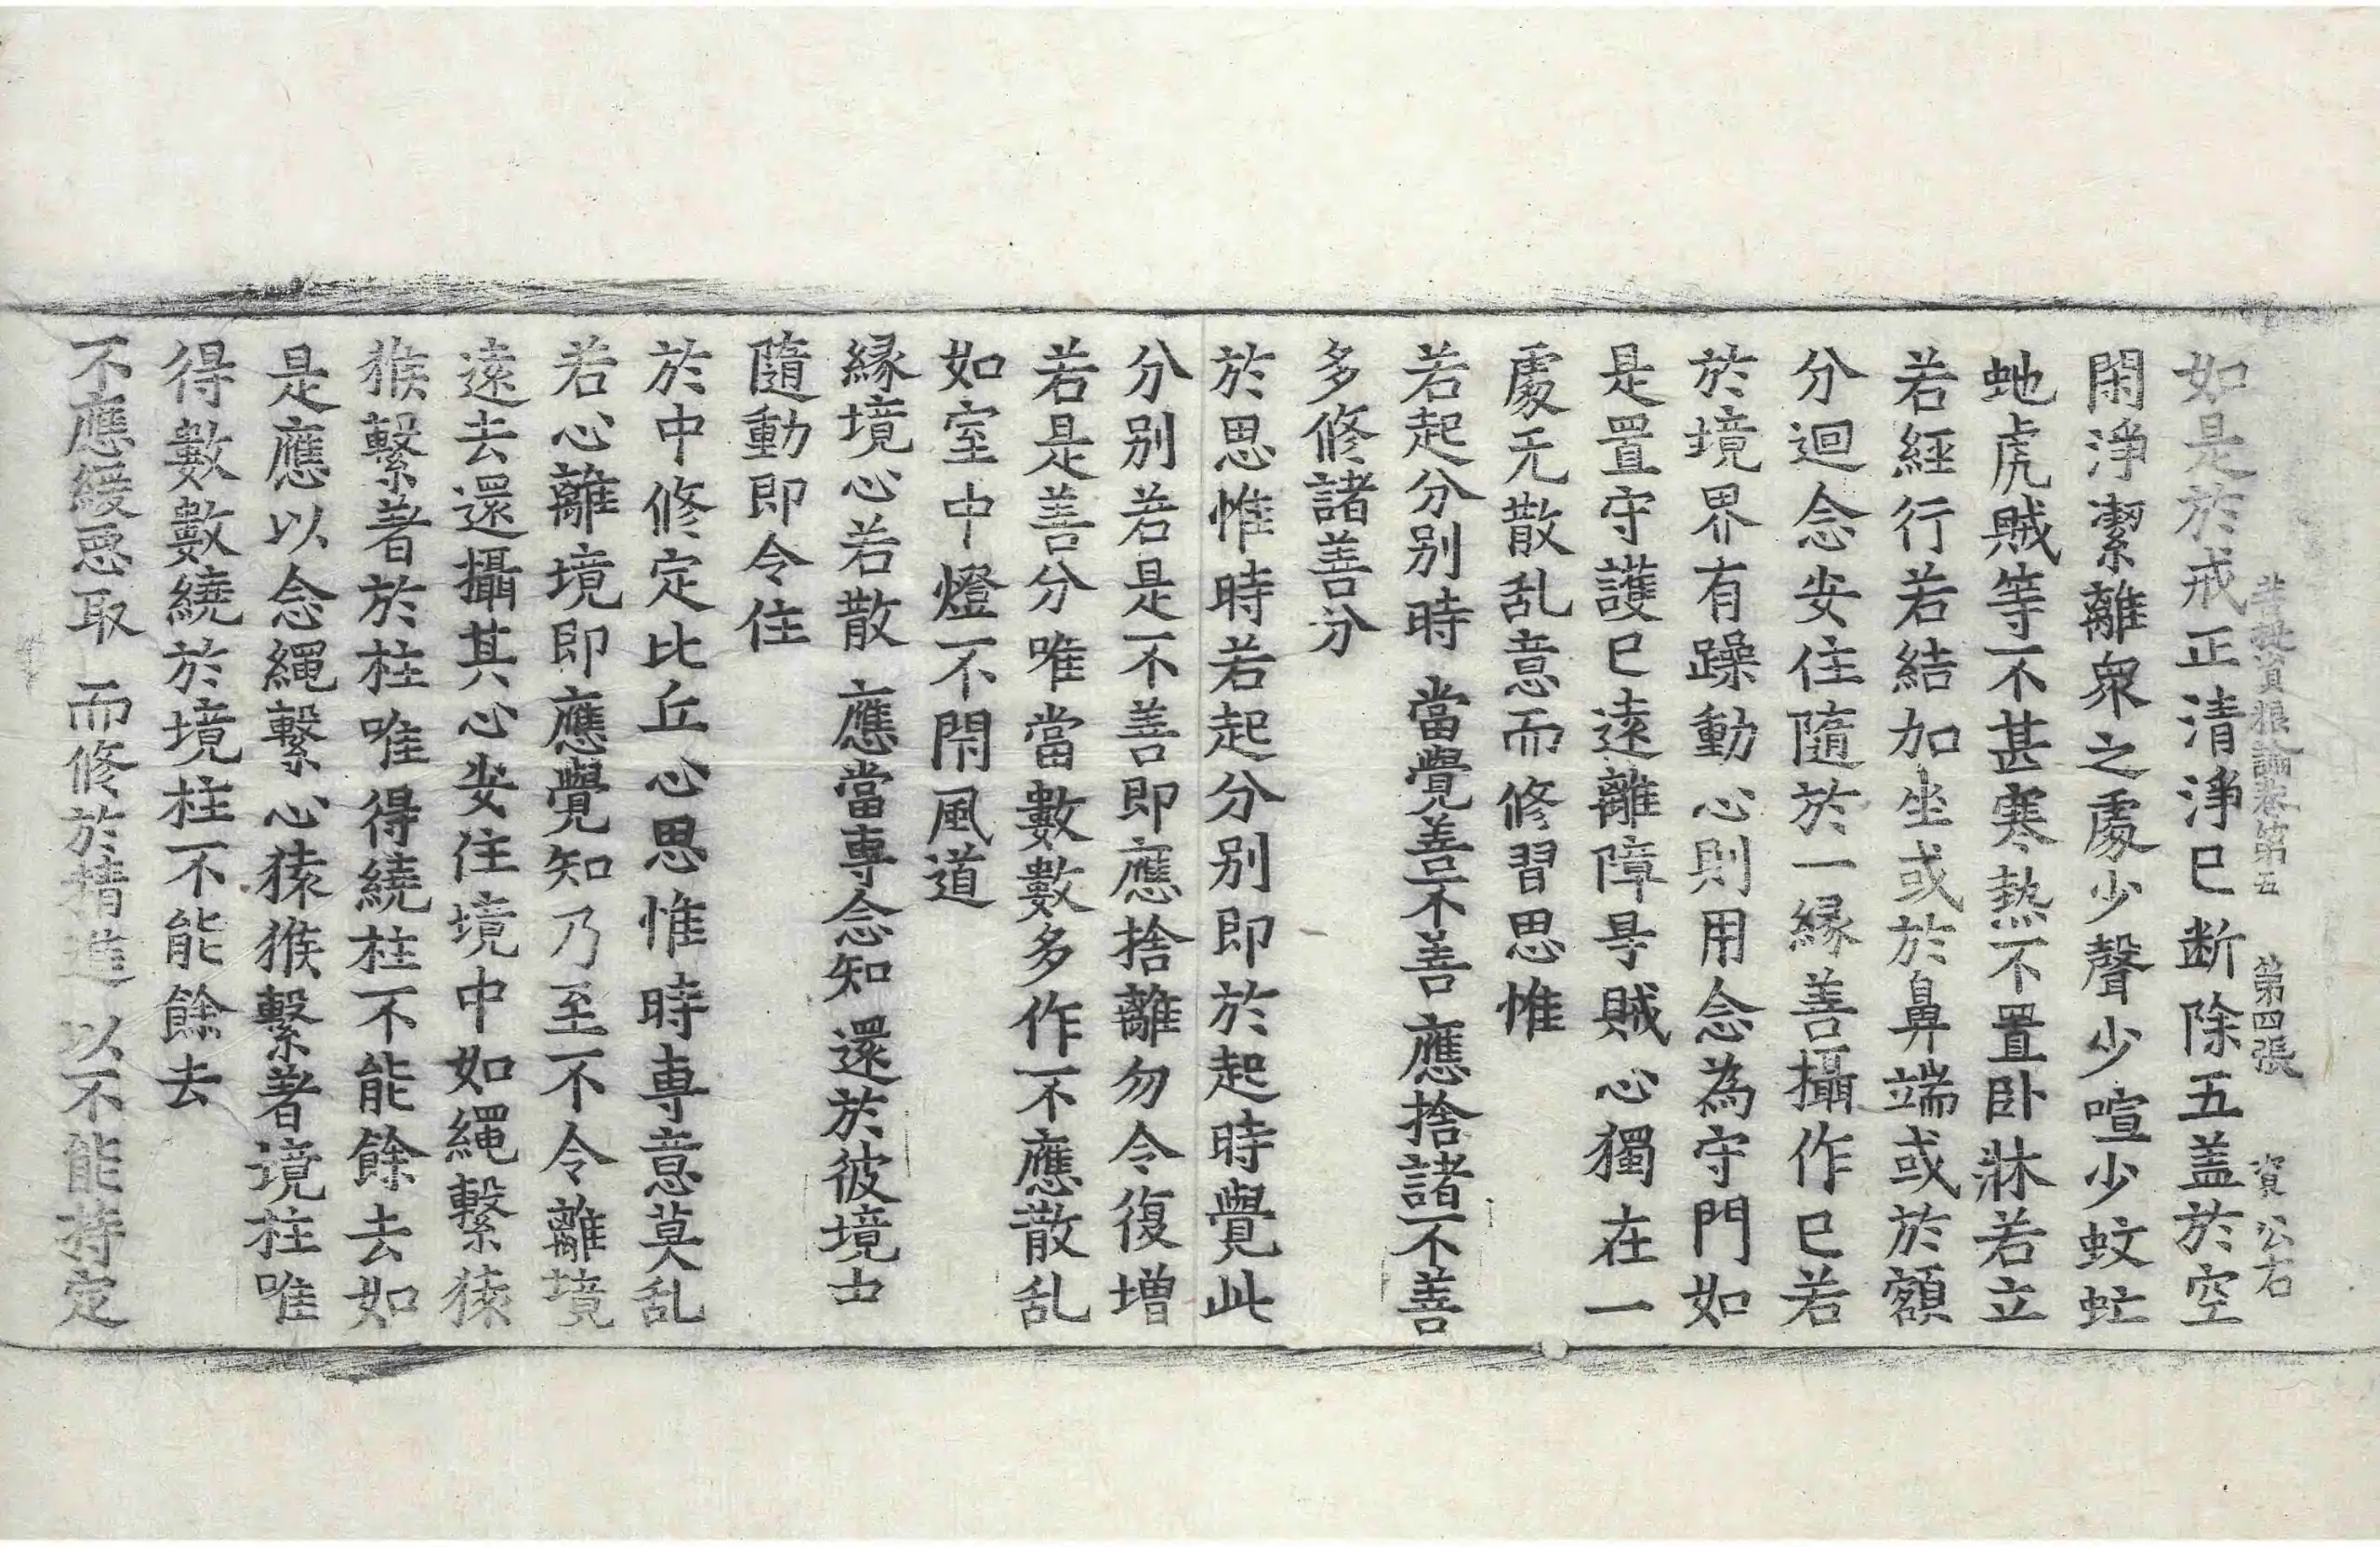 菩提資粮論卷第五 第四張 資 公右
如是於戒正清淨已断除五盖於空
閑淨潔離衆之處少聲少喧少蚊虻
虵虎賊等不甚寒熱不置卧牀若立
若經行若結加坐或於鼻端或於額
分迴念安住隨於一縁善攝作已若
於境界有躁動心則用念為守門如
是置守護已遠離障㝵賊心獨在一
處无散乱意而修習思惟
若起分别時 當覺善不善 應捨諸不善
多修諸善分
於思惟時若起分别即於起時覺此
分别若是不善即應捨離勿令復增
若是善分唯當數數多作不應散乱
如室中燈不閇風道
縁境心若散 應當專念知 還於彼境中
隨動即令住
於中修定比丘心思惟時專意莫乱
若心離境即應覺知乃至不令離境
遠去還攝其心安住境中如繩繫猿
猴繫著於柱唯得繞柱不能餘去如
是應以念繩繫心猿猴繫著境柱唯
得數數繞於境柱不能餘去
不應緩惡取 而修於精進 以不能持定